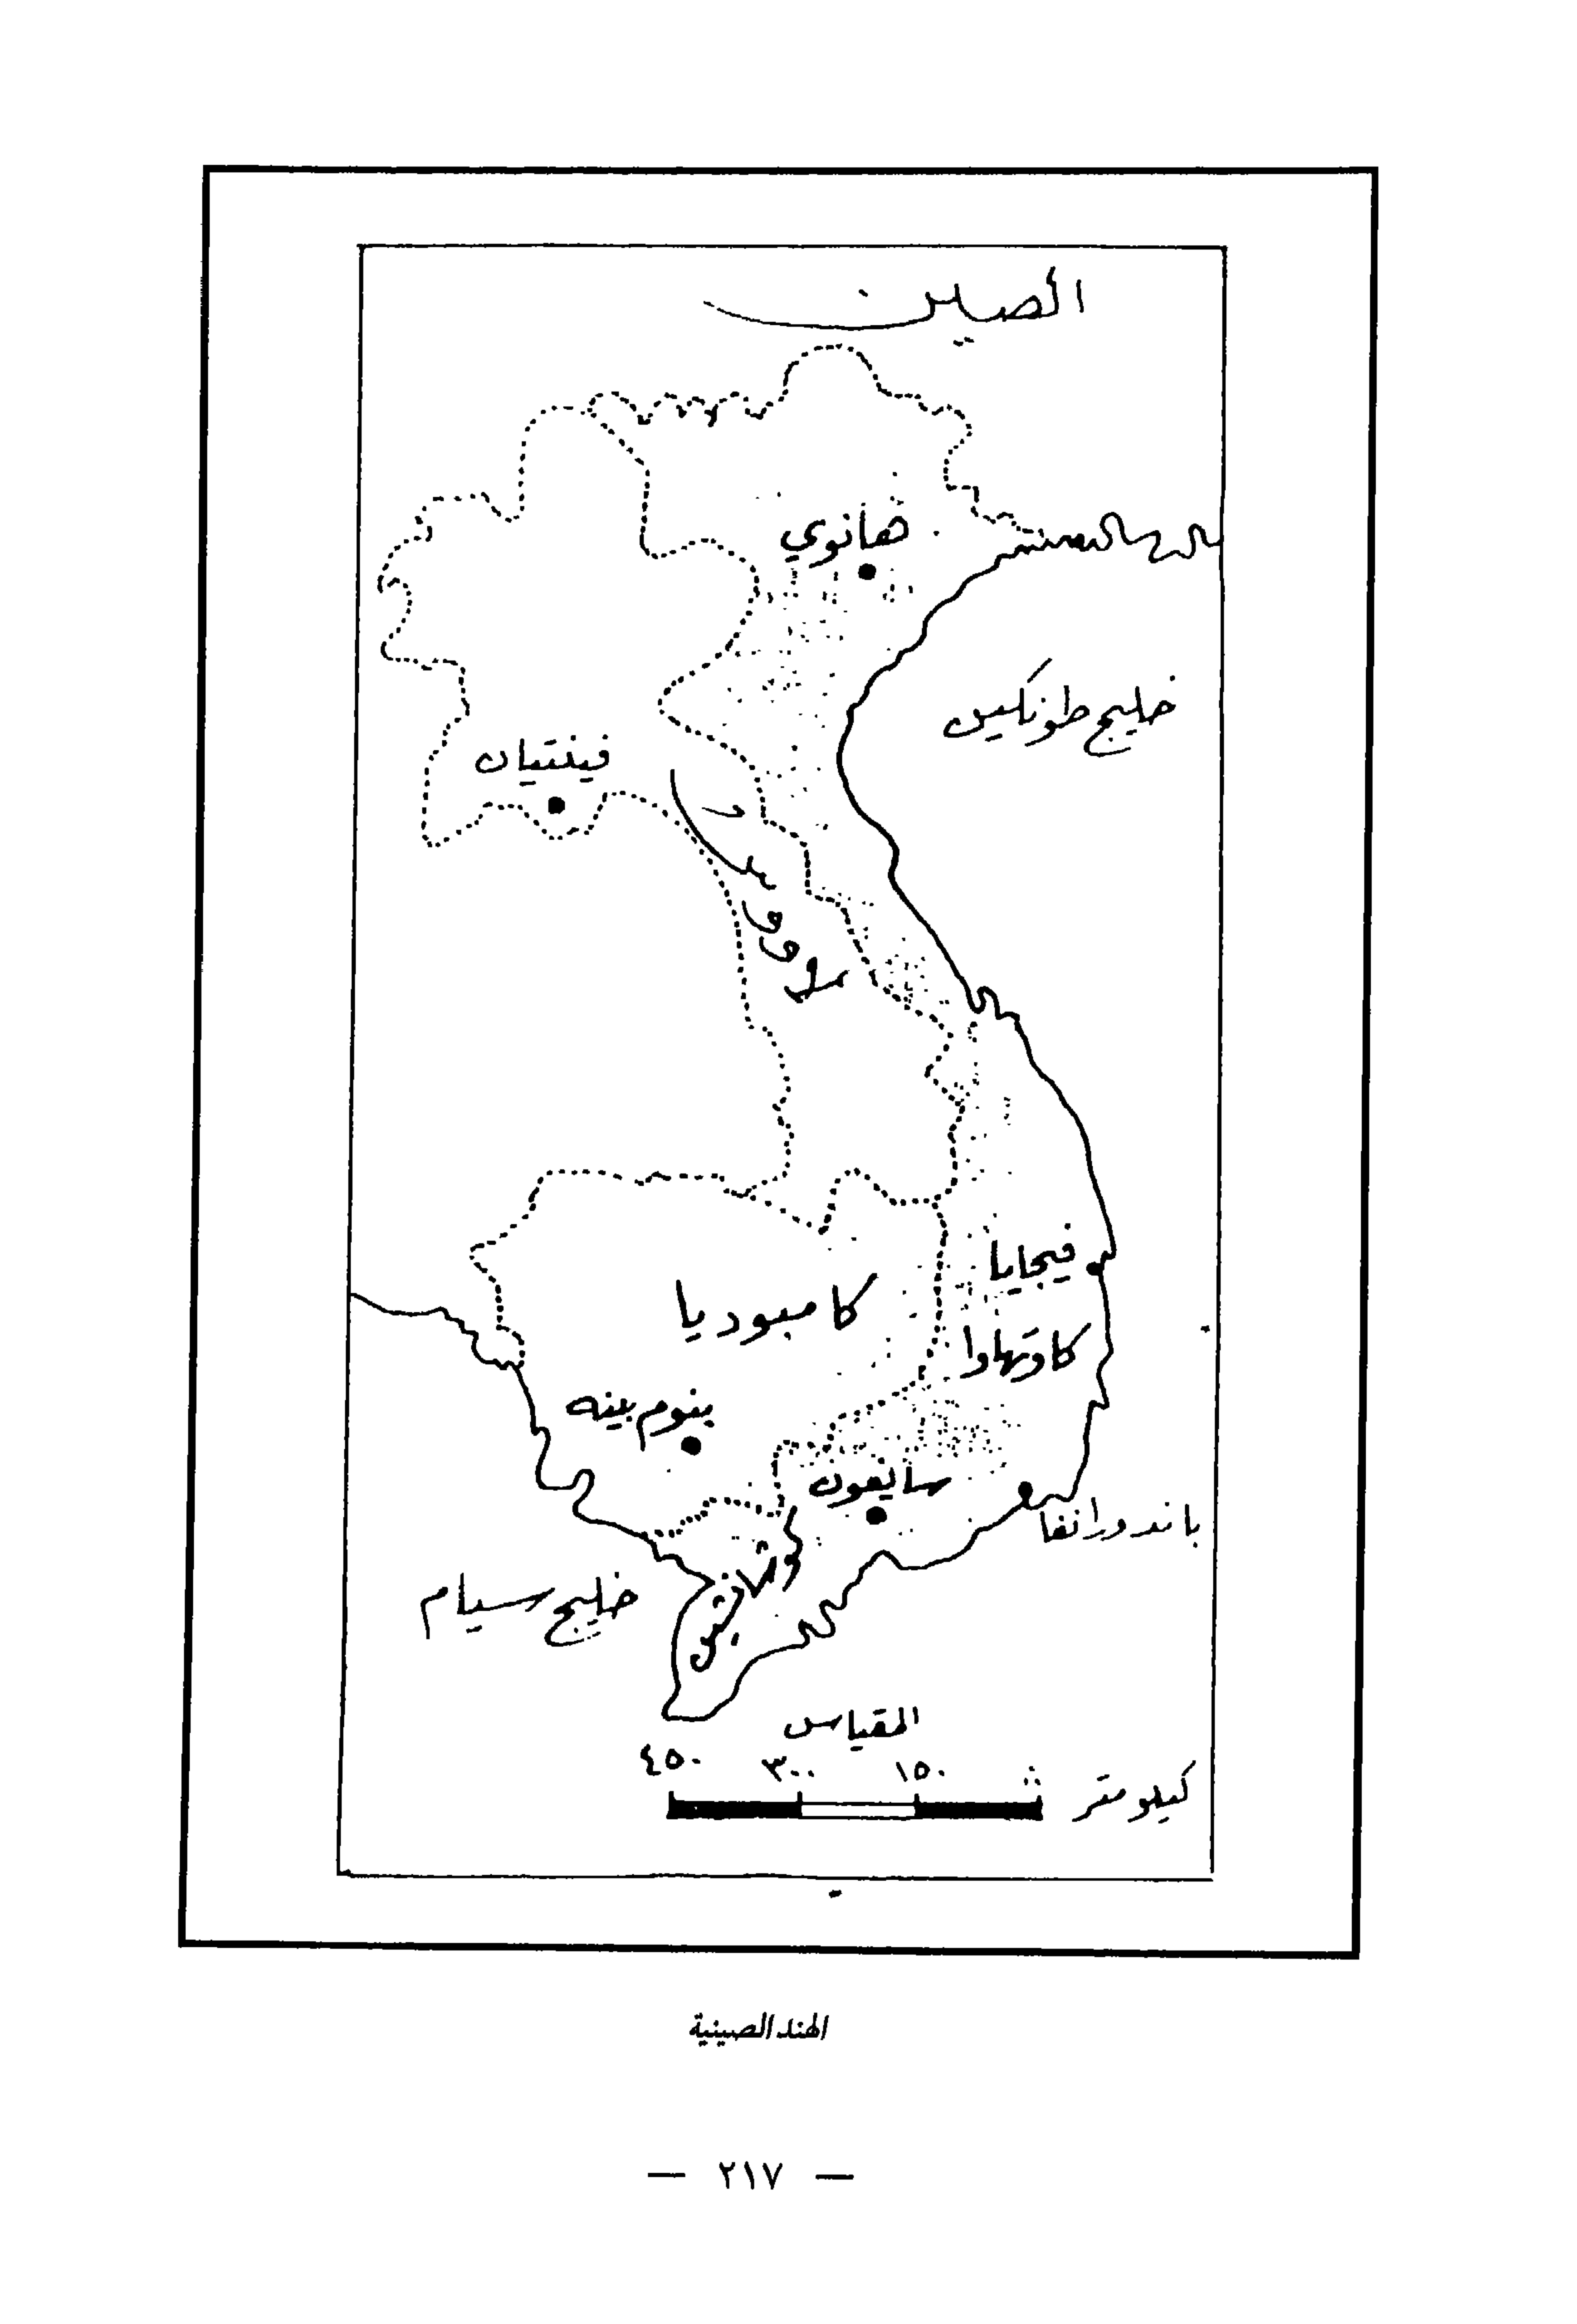 الصين
هانوي
خليج طونكين
فينتيان
فيجايا
كامبوديا
كاوتهاوا
بنوم بينه
سايغون
باندورانغا
خليج سيام
المقياس
٤٥٠ ٣٠٠ ١٥٠
كيلومتر
الهند الصينية
— ٢١٧ —